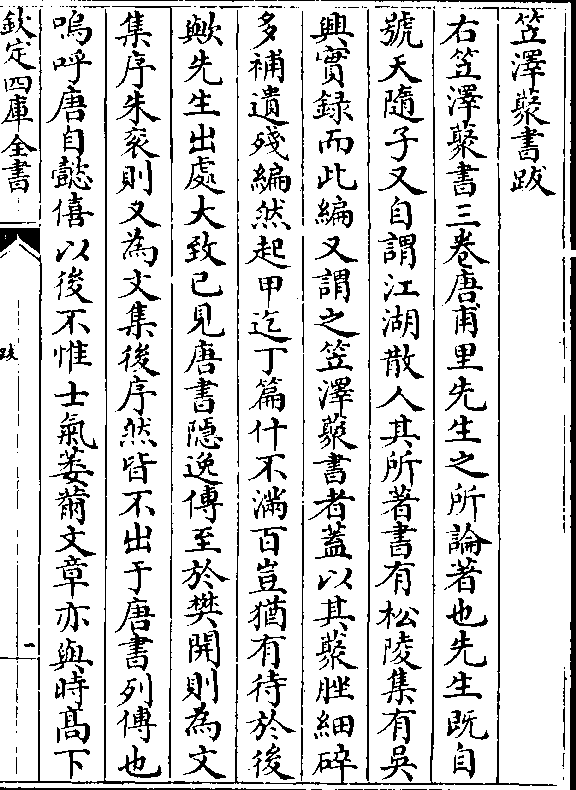 笠澤藂書跋
右笠澤藂書三卷唐甫里先生之所論著也先生既自
號天隨子又自謂江湖散人其所著書有松陵集有吳
興實録而此編又謂之笠澤藂書者蓋以其藂脞細碎
多補遺殘編然起甲迄丁篇什不滿百豈猶有待於後
歟先生出處大致已見唐書隱逸傳至於樊開則為文
集序朱衮則又為文集後序然皆不出于唐書列傳也
嗚呼唐自懿僖以後不惟士氣萎薾文章亦與時髙下
欽定四庫全書
跋
一